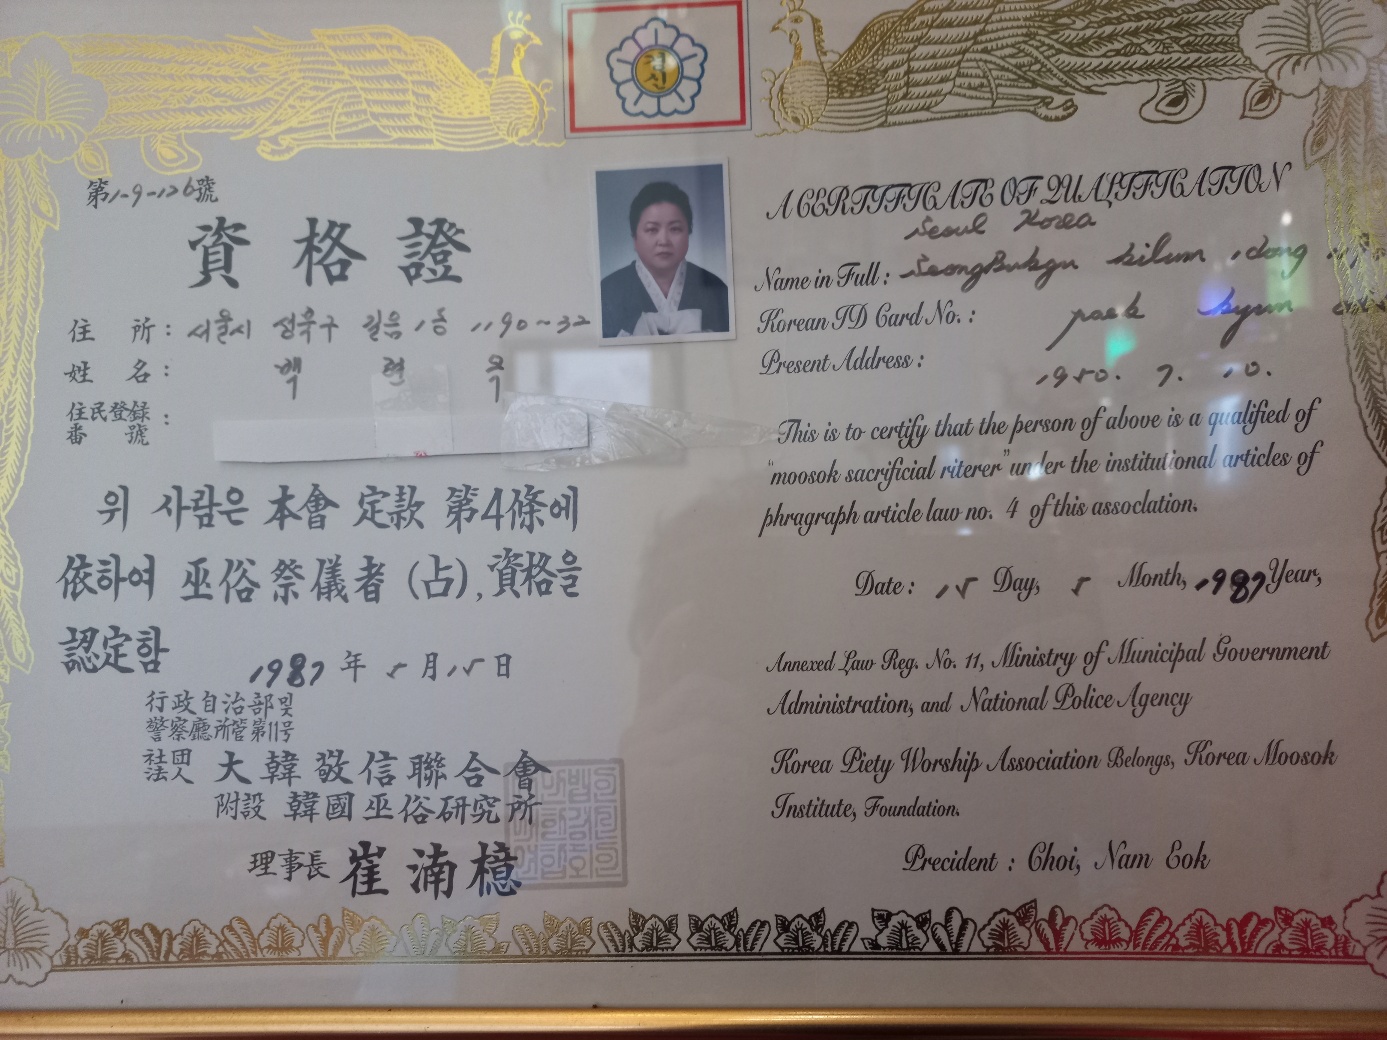 경신
第1-9-126號
資格證
住 所 : 서울시 성북구 길음1동 1190~32
姓 名 : 백 현 욱
住民登録
番 號 :
위 사람은 本會 定款 第4條에
依하여 巫俗 祭儀者 (占), 資格을
認定함
1987 年 5 月 15 日
行政自治部및
警察廳所管第11号
社団
法人 大韓敬信聯合會
附設 韓國巫俗研究所
理事長 崔湳檍
A CERTIFICATE OF QUALIFICATION
Seoul Korea
Name in Full : SeongBukgu kilum 1dong
Korean ID Card No. : paek hyun
Present Address :
1950. 7. 10.
This is to certify that the person of above is a qualified of
"moosok sacrificial riterer" under the institutional articles of
phragraph article law no. 4 of this assoclation.
Date : 15 Day, 5 Month, 1987 Year,
Annexed Law Reg. No. 11, Ministry of Municipal Government
Administration, and National Police Agency
Korea Piety Worship Association Belongs, Korea Moosok
Institute, Foundation.
Precident : Choi, Nam Eok